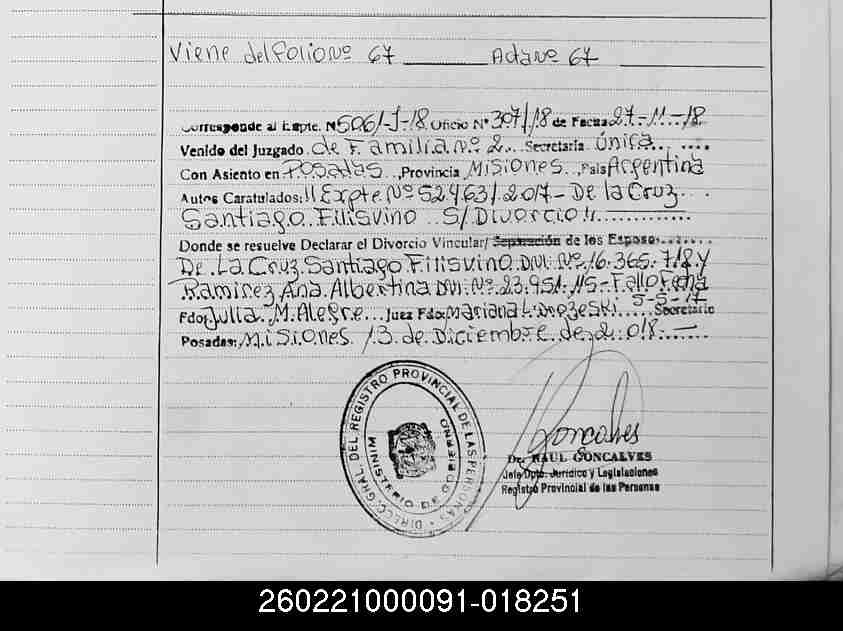 Viene del folio Nº 67 Acta Nº 67
Corresponde al Expte. Nº 506/-J-18. Oficio Nº 307/18 de Fecha 27-11-18
Venido del Juzgado de Familia Nº 2 Secretaría Única
Con Asiento en Posadas, Provincia Misiones, País Argentina
Autos Caratulados: "Expte Nº 52463/2017- De la Cruz
Santiago Filisvino S/Divorcio".
Donde se resuelve Declarar el Divorcio Vincular/ Separación de los Esposo
De La Cruz Santiago Filisvino DNI. Nº 16.365.718 y
Ramirez Ana Albertina DNI. Nº 23.951.115- Fallo Fecha
5-5-17
Fdo: Julia M. Alegre Juez Fdo: Mariana L. Secretario
Posadas: Misiones 13 de Diciembre de 2.018.-
DIRECC. GRAL. DEL REGISTRO PROVINCIAL DE LAS PERSONAS
MINISTERIO DE GOBIERNO
Goncalves
Dr. RAUL GONCALVES
Jefe Dpto. Jurídico y Legislaciones
Registro Provincial de las Personas
260221000091-018251